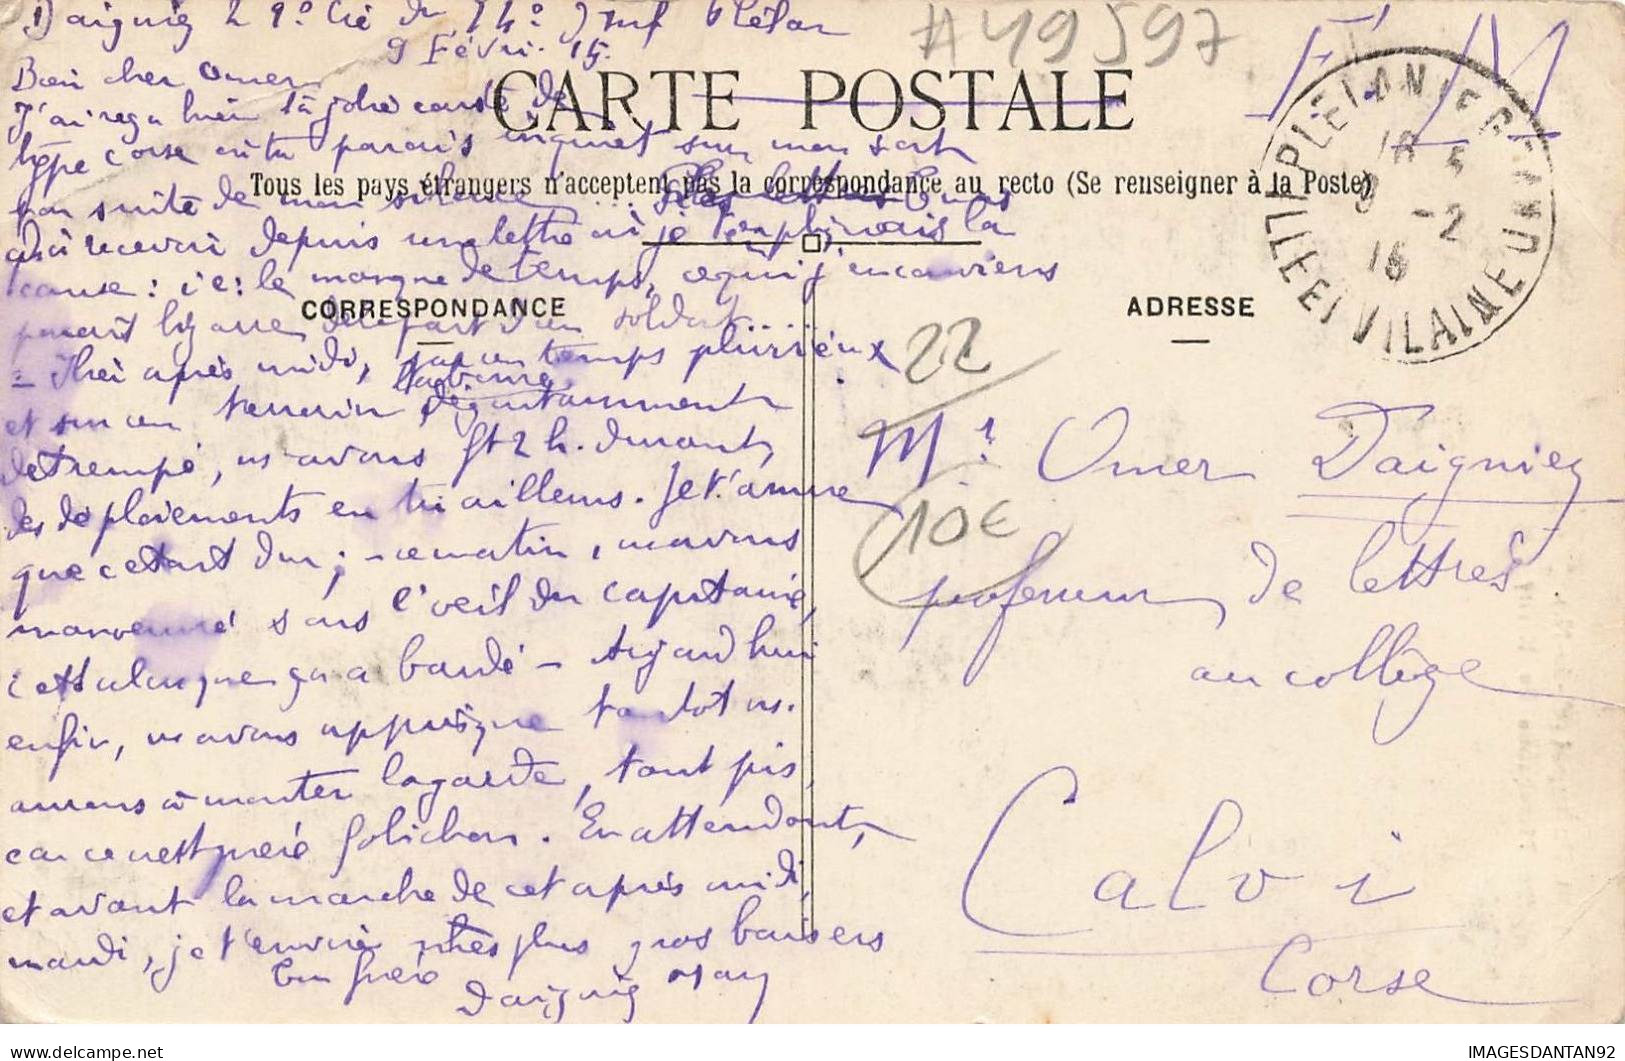 Daignez 29° Cie du 74° Inf Plélan
# 49597
F.M
9 Févri. 15.
Bien cher Omer
CARTE POSTALE
PLELAN-LE-GRAND
ILLE ET VILAINE
9 -2
15
J'ai reçu hier ta jolie carte de
type corse où tu parais inquiet sur mon sort
Tous les pays étrangers n'acceptent pas la correspondance au recto (Se renseigner à la Poste)
par suite de mon silence ... Tu as
dû recevoir depuis une lettre où je t'expliquais la
cause : i.e: le manque de temps, ce qui, j'en conviens
CORRESPONDANCE
ADRESSE
paraît bizarre de la part d'un soldat.....
22
= Hier après midi, par un temps pluvieux
et sur un terrain
détrempé, ns avons ft 2 h. durant,
des déploiements en tirailleurs. Je t'assure
que c'était dur ; - ce matin, ns avons
manoeuvré sous l'oeil du capitaine,
c'est alors que ça a bardé - Aujourd'hui
enfin, ns avons appris que tantôt ns.
aurons à monter la garde, tant pis,
car ce n'est guère folichon. En attendant,
et avant la marche de cet après midi,
mardi, je t'envoie mes plus gros baisers
Ton frère
Daignez
Mr Omer Daigniez
10€
professeur de lettres
au collège
Calvi
Corse
IMAGESDANTAN92
delcampe.net